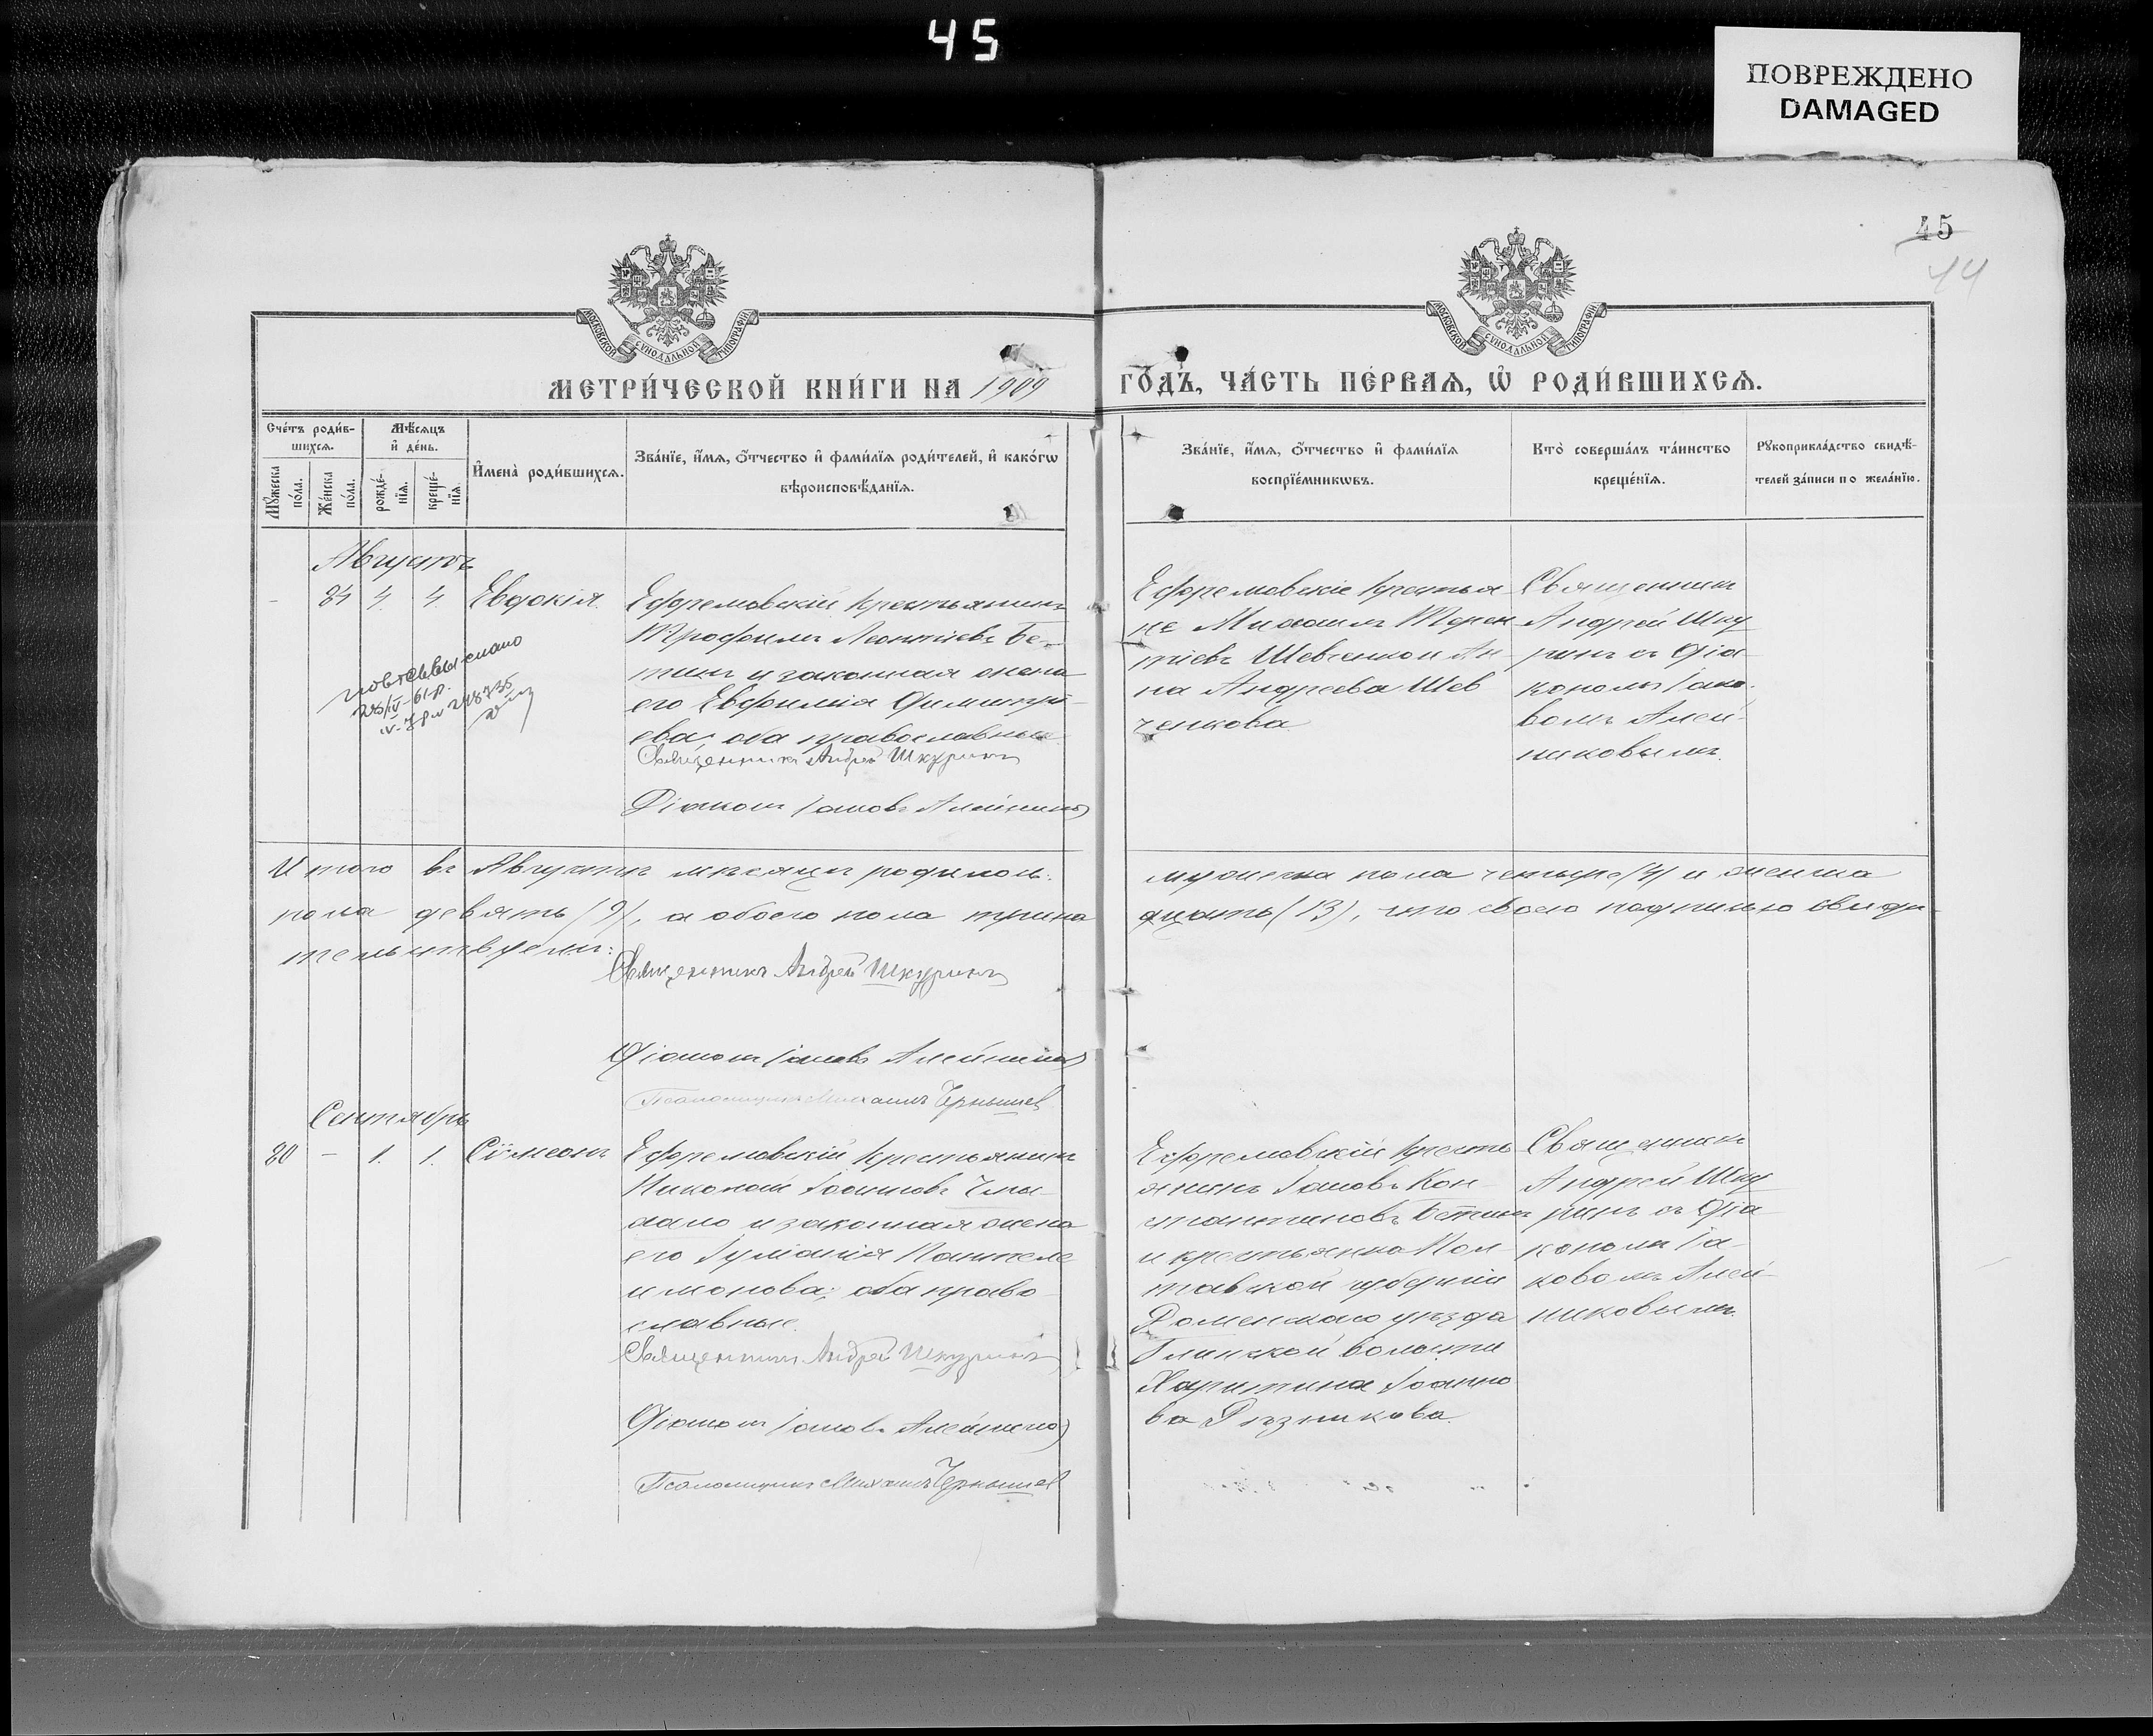 45
ПОВРЕЖДЕНО
DAMAGED
45
44
МОСКОВСКОЙ СУНОДАЛЬНОЙ ТИПОГРАФІИ
МОСКОВСКОЙ СУНОДАЛЬНОЙ ТИПОГРАФІИ
МЕТРИ́ЧЕСКОЙ КНИ́ГИ НА 1909 ГО́ДЪ, ЧА́СТЬ ПЕ́РВАѦ, Ѡ҆ РОДИ́ВШИХСѦ.
Сче́тъ роди́в-
шихсѧ.
Мꙋ́жеска
по́ла.
Же́нска
по́ла.
Мѣ́сѧцъ
и҆ де́нь.
рожде́-
нїѧ.
креще́-
нїѧ.
И҆мена̀ роди́вшихсѧ.
Зва́нїе, и҆́мѧ, ѻ҆́тчество и҆ фами́лїѧ роди́телей, и҆ како́гѡ
вѣроисповѣ́данїѧ.
Зва́нїе, и҆́мѧ, ѻ҆́тчество и҆ фами́лїѧ
воспрїе́мникѡвъ.
Кто̀ соверша́лъ та́инство
креще́нїѧ.
Рꙋкоприкла́дство свидѣ́-
телей за́писи по жела́нїю.
Августъ
- 24 4. 4. Евдокія.
Ефремовскій крестьянинъ
Трофимъ Леонтіевъ Бе-
тинъ и законная жена
его Евфимія Димитрі-
ева, оба православные.
Священникъ Андрей Шкуринъ
Діаконъ Іаковъ Алейников
Ефремовскіе крестья
не Михаилъ Терен
тіевъ Шевченко и Ан
на Андреева Шев
ченкова.
Священникъ
Андрей Шку
ринъ съ Діа
кономъ Іако
вомъ Алей-
никовымъ.
повт. св-во выслано
28/IV-61 р.
Итого въ Августѣ мѣсяцѣ родилось: мужеска пола четыре (4) и женска
пола девять (9), а обоего пола трина дцать (13), что своею подписью свидѣ-
тельствуемъ:
Священникъ Андрей Шкуринъ
Діаконъ Іаковъ Алейников
Псаломщикъ Михаилъ Чернышев
Сентябрь
20 - 1. 1. Сѵмеонъ
Ефремовскій крестьянинъ
Николай Іоанновъ
и законная жена
его Іуліанія Пантеле
имонова; оба право-
славные.
Священникъ Андрей Шкуринъ
Діаконъ Іаковъ Алейников
Псаломщикъ Михаилъ Чернышев
Ефремовскій кресть
янинъ Іаковъ Кон-
стантиновъ Бетинъ
и крестьянка Пол-
тавской губерніи
Роменскаго уѣзда
Глинской волости
Харитина Іоанно
ва Рѣзникова.
Священникъ
Андрей Шку
ринъ съ Діа
кономъ Іа-
ковомъ Алей-
никовымъ.